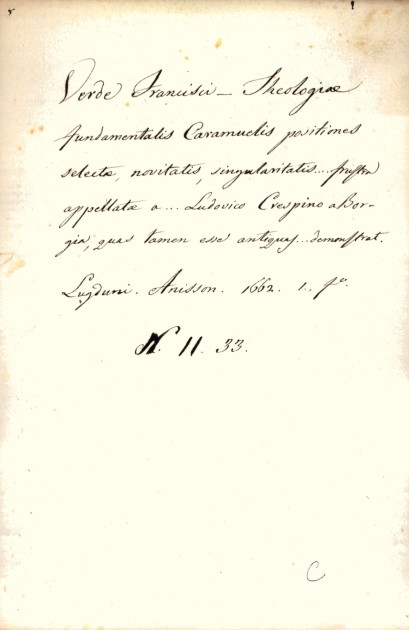 Verde Francisci — Theologiæ
fundamentalis Caramuelis positiones
selectæ, novitatis, singularitatis... frustra
appellatæ a ... Ludovico Crespino a Bor-
gia, quas tamen esse antiquas... demonstrat.
Lugduni. Anisson. 1662. 1. fº.
N. 11. 33.
C